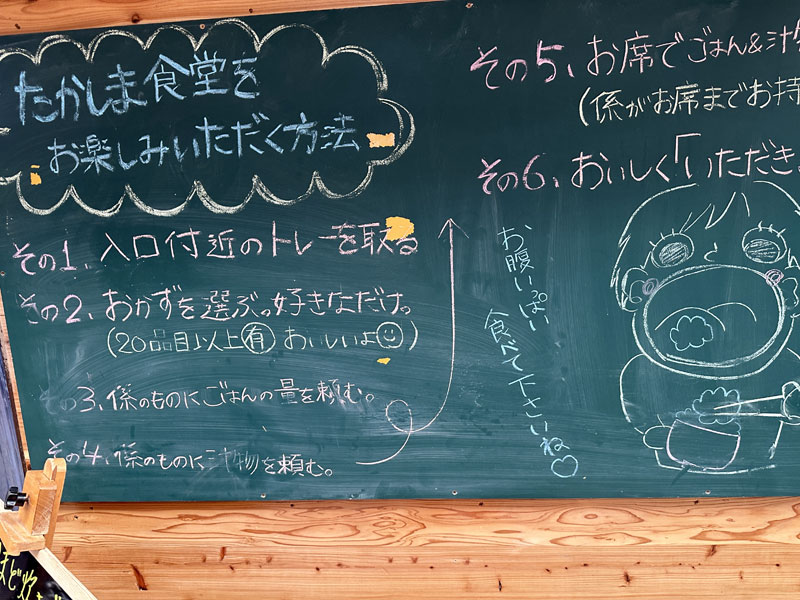 たかしま食堂を
お楽しみいただく方法
その1、入口付近のトレーを取る
その2、おかずを選ぶ。好きなだけ。
(20品目以上有 おいしいよ)
その3、係のものにごはんの量を頼む。
その4、係のものに汁物を頼む。
その5、お席でごはん&汁
(係がお席までお持
その6、おいしく「いただき
お腹いっぱい
食べて下さいね♡